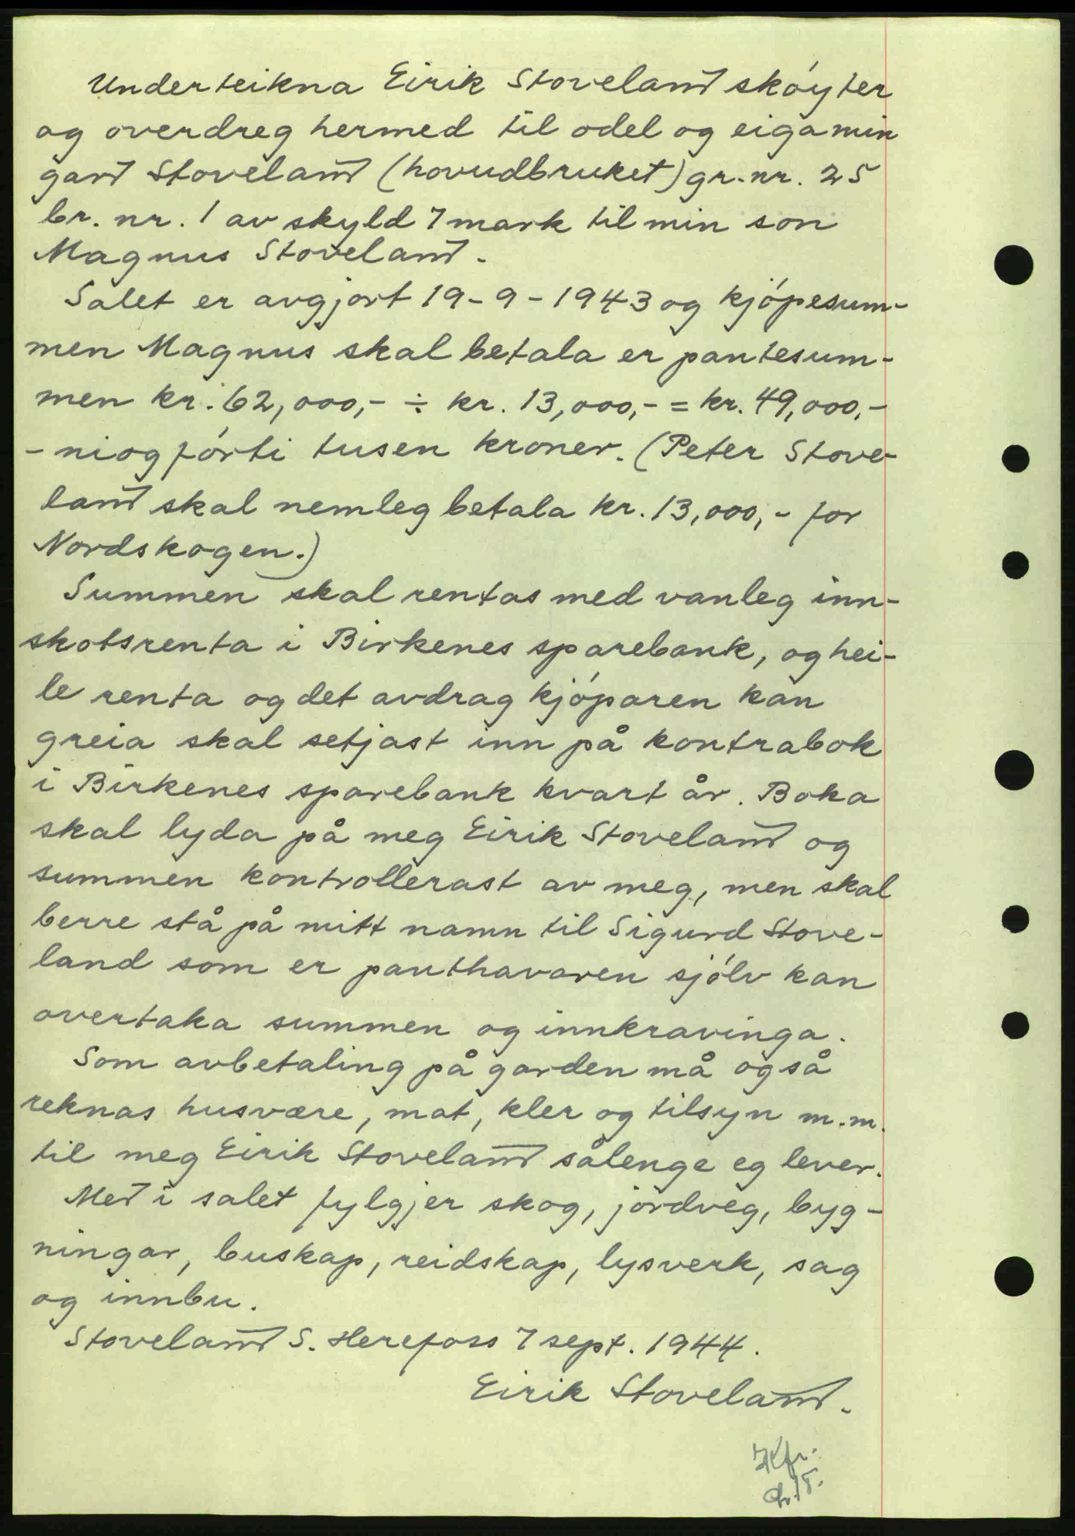 Underteikna Eirik Stoveland skóyter
og overdreg hermed til odel og eiga min
gard Stoveland (hovudbruket) gr. nr. 25
br. nr. 1 av skyld 7 mark til min son
Magnus Stoveland.
Salet er avgjort 19-9-1943 og kjópesum-
men Magnus skal betala er pantesum-
men kr. 62,000,- ÷ kr. 13,000,- = kr. 49,000,-
- niogfórti tusen kroner. (Peter Stove-
land skal nemleg betala kr. 13,000,- for
Nordskogen.)
Summen skal rentas med vanleg inn-
skotsrenta i Birkenes sparebank, og hei-
le renta og det avdrag kjóparen kan
greia skal setjast inn på kontrabok
i Birkenes sparebank kvart år. Boka
skal lyda på meg Eirik Stoveland og
summen kontrollerast av meg, men skal
berre stå på mitt namn til Sigurd Stove-
land som er panthavaren sjólv kan
overtaka summen og innkravinga.
Som avbetaling på garden må også
reknas husvære, mat, kler og tilsyn m.m.
til meg Eirik Stoveland sålenge eg lever.
Med i salet fylgjer skog, jordveg, byg-
ningar, buskap, reidskap, lysverk, sag
og innbu.
Stoveland S. Herefoss 7 sept. 1944.
Eirik Stoveland.